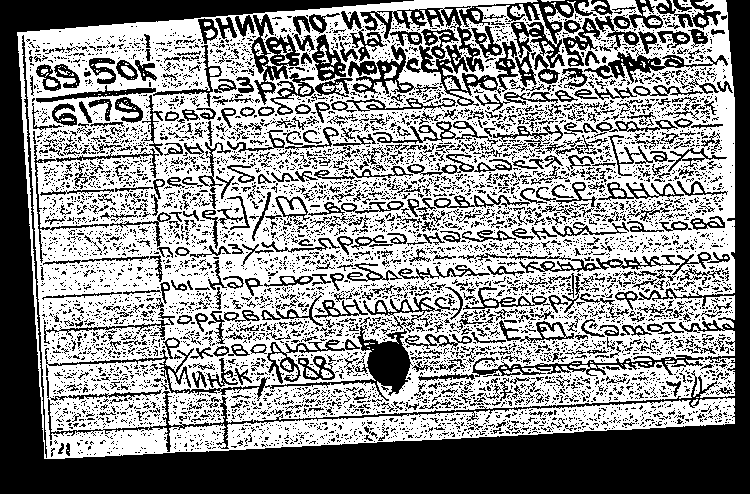 ВНИИ ПО ИЗУЧЕНИЮ СПРОСА НАСЕ-
ЛЕНИЯ НА ТОВАРЫ НАРОДНОГО ПОТ-
РЕБЛЕНИЯ И КОНЪЮНКТУРЫ ТОРГОВ-
ЛИ. БЕЛОРУССКИЙ ФИЛИАЛ.
89-50К
6179
Разработать прогноз спроса и
товарооборота в общественном пи
тании БССР на 1989 г. в целом по
республике и по областям [Науч.
отчет] / М-во торговли СССР, ВНИИ
по изуч. спроса населения на това-
ры нар. потребления и конъюнктуры
торговли (ВНИИКС) Белорус. фил.;
Руководитель темы Е. М. Самотина
Минск, 1988
См. след. карт.